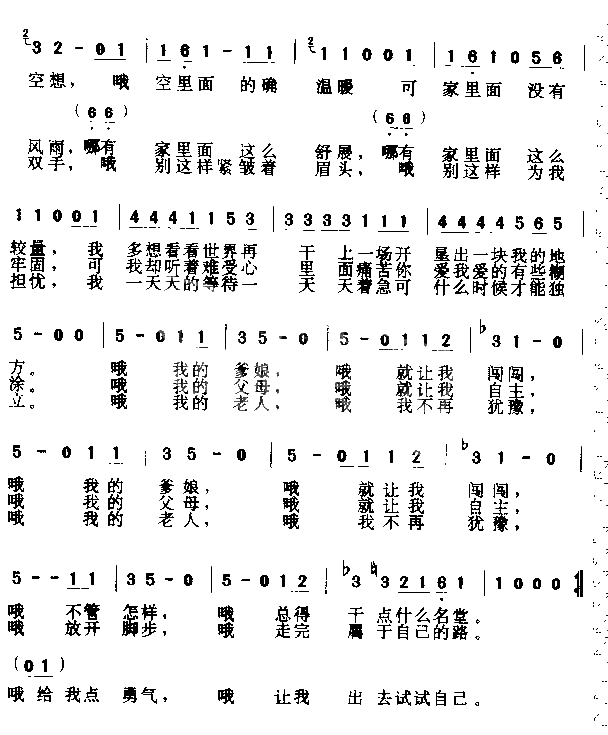 2 3 2 - 0 1 | 1 6 1 - 1 1 | 2 1 1 0 0 1 | 1 6 1 0 5 6 |
空想， 哦 空里面 的确 温暖 可 家里面 没有
(6 6) (6 6)
风雨，哪有 家里面 这么 舒展，哪有 家里面 这么
双手，哦 别这样 紧皱着 眉头，哦 别这样 为我
1 1 0 0 1 | 4 4 4 1 1 5 3 | 3 3 3 3 1 1 1 | 4 4 4 4 5 6 5 |
较量，我 多想看看世界再 干 上一场开 垦出一块我的地
牢固，可 我却听着难受心 里 面痛苦你 爱我爱的有些糊
担忧，我 一天天的等待一 天 天着急可 爱什么时候才能独
5 - 0 0 | 5 - 0 1 1 | 3 5 - 0 | 5 - 0 1 1 2 | ♭3 1 - 0 |
方。 哦 我的 爹娘， 哦 就让我 闯闯，
涂。 哦 我的 父母， 哦 就让我 自主，
立。 哦 我的 老人， 哦 我不再 犹豫，
5 - 0 1 1 | 3 5 - 0 | 5 - 0 1 1 2 | ♭3 1 - 0 |
哦 我的 爹娘， 哦 就让我 闯闯，
哦 我的 父母， 哦 就让我 自主，
哦 我的 老人， 哦 我不再 犹豫，
5 - - 1 1 | 3 5 - 0 | 5 - 0 1 2 | ♭3 ♭3 2 1 6 1 | 1 0 0 0 ‖
哦 不管 怎样， 哦 总得 干 点什么名堂。
哦 放开 脚步， 哦 走完 属于自己的路。
(0 1)
哦给我点 勇气， 哦 让我 出 去试试自己。